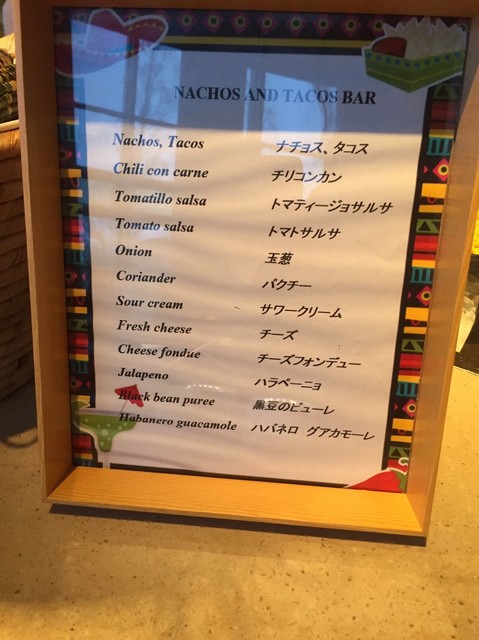 NACHOS AND TACOS BAR
Nachos, Tacos ナチョス、タコス
Chili con carne チリコンカン
Tomatillo salsa トマティージョサルサ
Tomato salsa トマトサルサ
Onion 玉葱
Coriander パクチー
Sour cream サワークリーム
Fresh cheese チーズ
Cheese fondue チーズフォンデュー
Jalapeno ハラペーニョ
Black bean puree 黒豆のピューレ
Habanero guacamole ハバネロ グアカモーレ